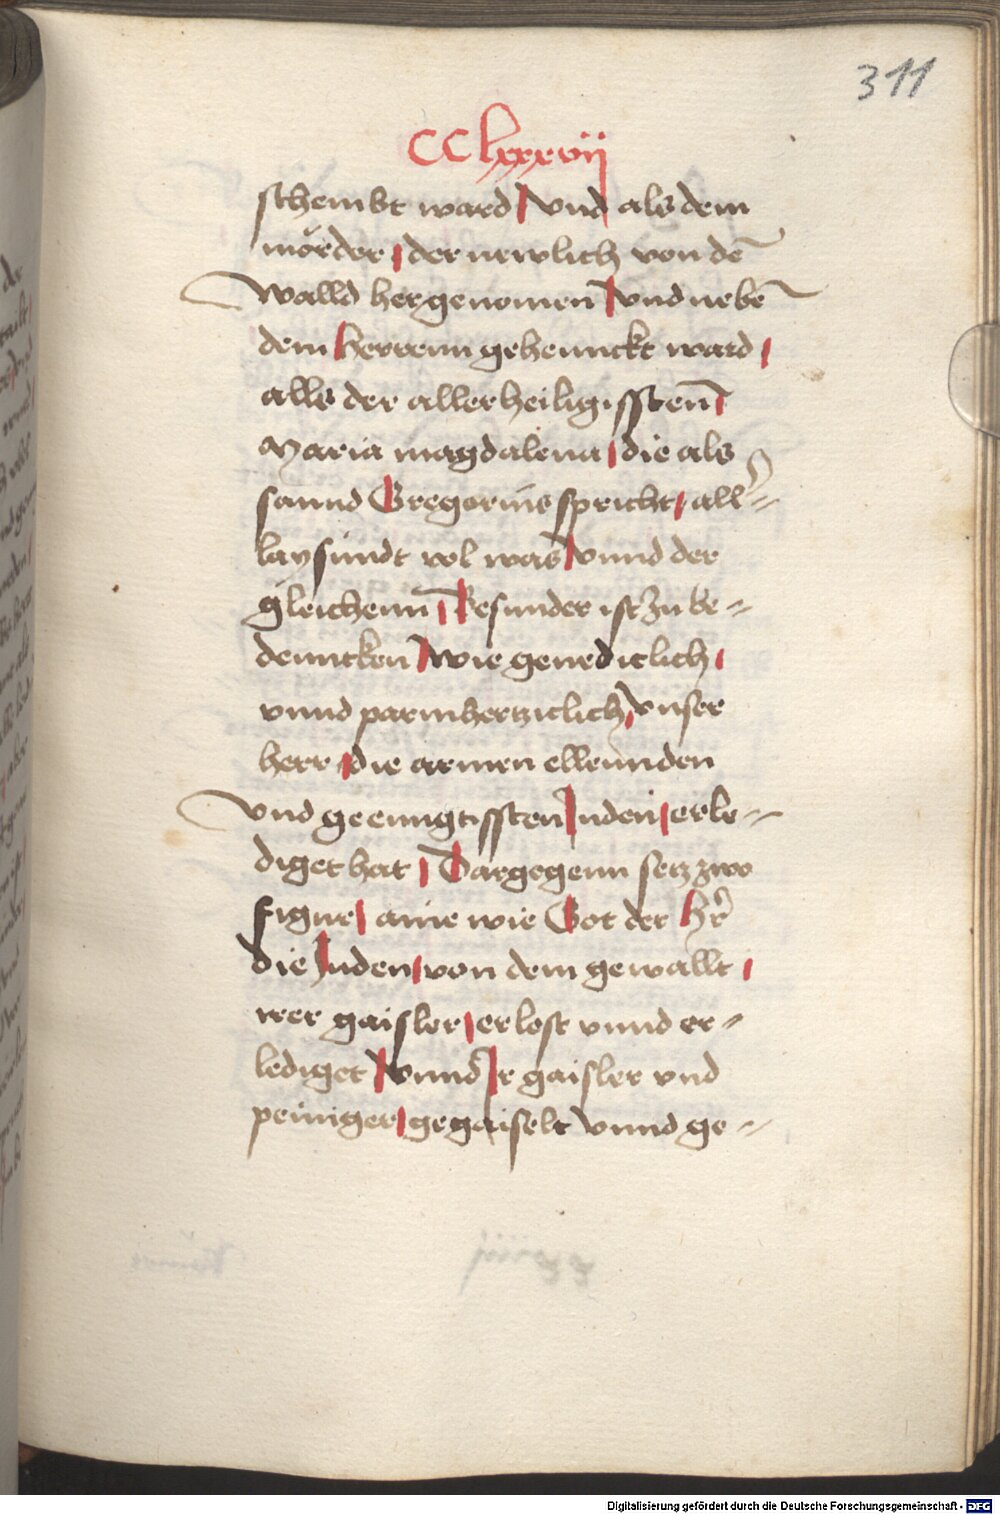 311
CClxxxvij
schembt ward / vnd als dem
mörder / der newlich von dē
walld her genomen / vnd nebē
dem herrenn gehennckt ward /
alls der allerheiligissten /
Maria magdalena / die als
sannd Gregorius spricht / all=
lay sündt vol was / vnnd der
gleichenn / Besunder ist zu be=
dennckenn / wie genedicklich /
vnnd parmhertziclich / vnser
herr / die armen ellennden
vnd geenngtissten Juden / erle=
diget hat / Dargegenn setz zwo
figur / aine wie Got der Hr̄
die Juden / von dem gewallt /
irer gaisler / erlost vnnd er=
lediget / vnnd Jr gaisler vnd
peiniger / gegaiselt vnnd ge=
Digitalisierung gefördert durch die Deutsche Forschungsgemeinschaft - DFG